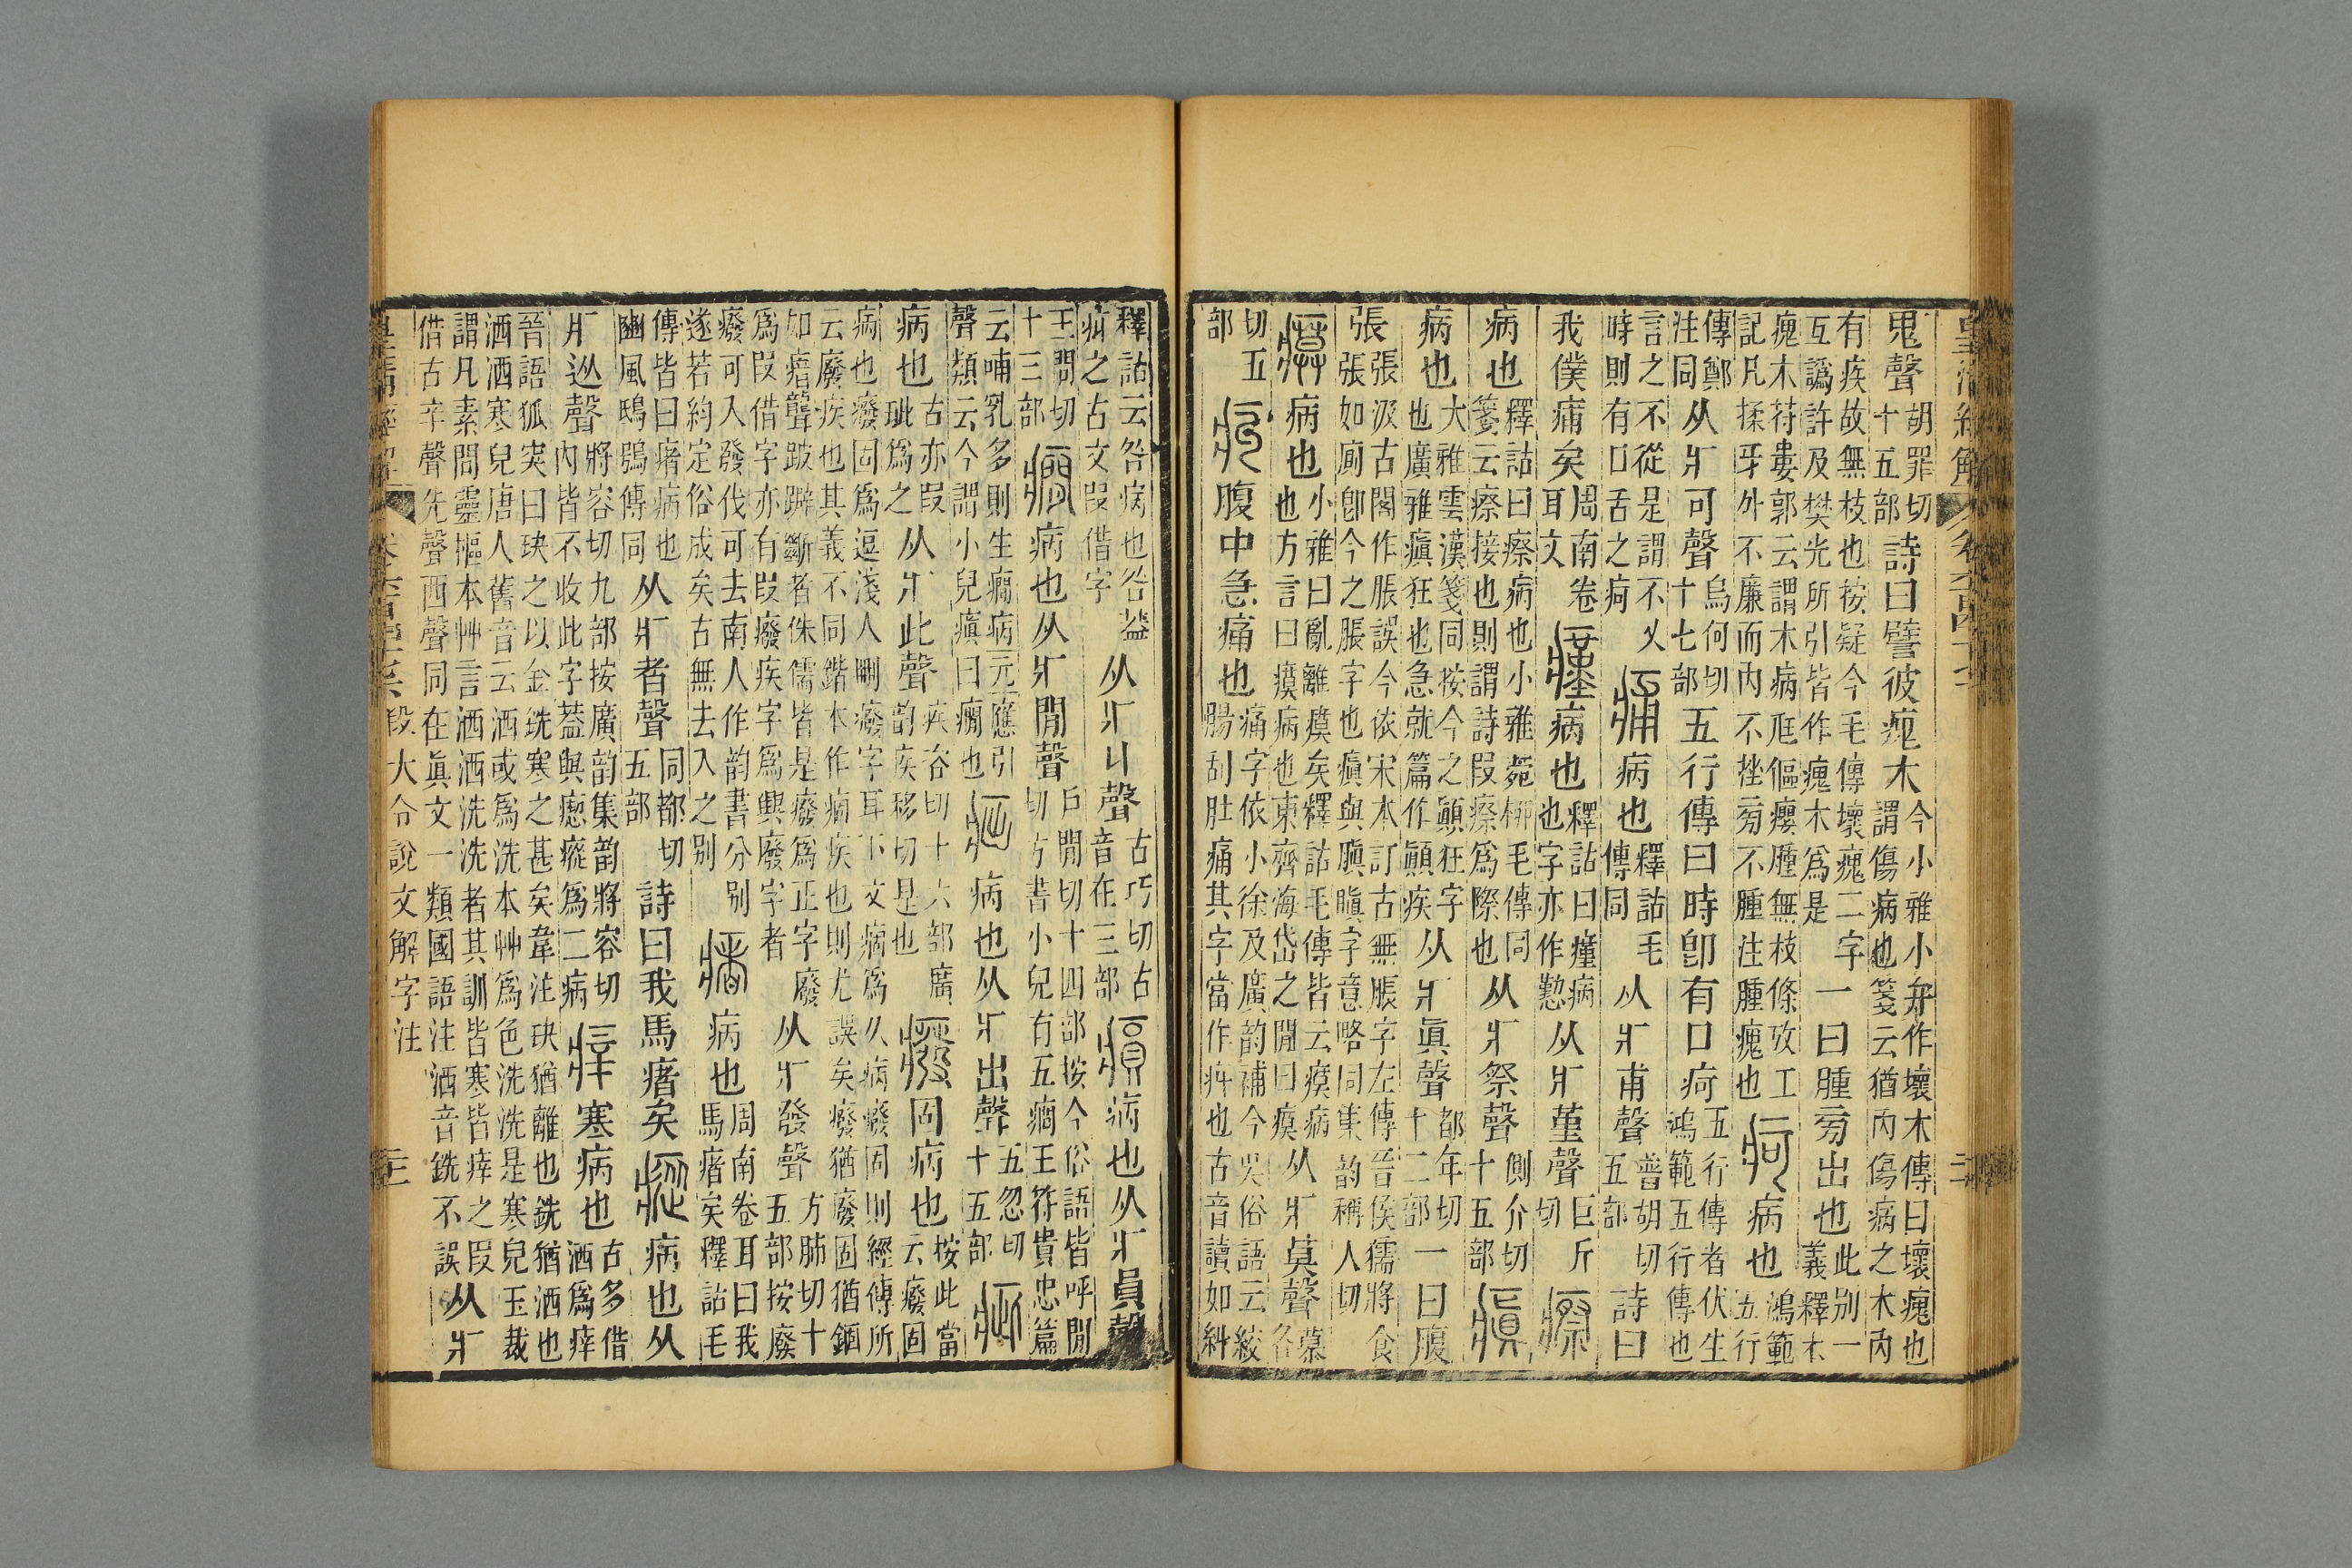 皇清經解 卷六百四十七 三
鬼聲胡罪切十五部詩曰譬彼瘣木今小雅小弁作壞木傳曰壞瘣也謂傷病也箋云猶內傷病之木內
有疾故無枝也按疑今毛傳壞瘣二字互譌許及樊光所引皆作瘣木爲是一曰腫旁出也此別一義釋木
瘣木苻婁郭云謂木病尪傴癭腫無枝條攷工記凡揉牙外不廉而內不挫旁不腫注腫瘣也疴病也鴻範五行
傳鄭注同从疒可聲烏何切十七部五行傳曰時卽有口疴五行傳者伏生鴻範五行傳也
言之不從是謂不乂時則有口舌之疴痡病也釋詁毛傳同从疒甫聲普胡切五部詩曰
我僕痡矣周南卷耳文瘽病也釋詁曰瘽病也字亦作懃从疒堇聲巨斤切瘵
病也釋詁曰瘵病也小雅菀柳毛傳同箋云瘵接也則謂詩叚瘵爲際也从疒祭聲側介切十五部瘨
病也大雅雲漢箋同按今之顚狂字也廣雅瘨狂也急就篇作顚疾从疒眞聲都年切十二部一曰腹
張張汲古閣作脹誤今依宋本訂古無脹字左傳晉侯獳將食張如廁卽今之脹字也瘨與䐜瞋字意略同集韵稱人切
瘼病也小雅曰亂離瘼矣釋詁毛傳皆云瘼病也方言曰瘼病也東齊海岱之閒曰瘼从疒莫聲慕各
切五部㽱腹中急痛也痛字依小徐及廣韵補今吳俗語云絞腸刮肚痛其字當作㽱也古音讀如糾
釋詁云咎病也咎葢㽱之古文叚借字从疒丩聲古巧切古音在三部㾓病也从疒員聲
王問切十三部癇病也从疒閒聲戶閒切十四部按今俗語皆呼閒切方書小兒有五癇王符貴忠篇
云哺乳多則生癇病元應引聲類云今謂小兒瘨曰癇也𤵸病也从疒出聲五忽切十五部疵
病也古亦叚玼爲之从疒此聲疾咨切十六部廣韵疾移切是也癈固病也按此當云癈固
病也癈固爲逗淺人刪癈字耳下文痼爲久病癈固則經傳所云廢疾也其義不同鍇本作痼疾也則尤誤矣癈猶廢固猶錮
如瘖聾跛躃斷者侏儒皆是癈爲正字廢爲叚借字亦有叚癈疾字爲興廢字者从疒發聲方肺切十五部按廢
癈可入發伐可去南人作韵書分別遂若約定俗成矣古無去入之別瘏病也周南卷耳曰我馬瘏矣釋詁毛
傳皆曰瘏病也豳風鴟鴞傳同从疒者聲同都切五部詩曰我馬瘏矣瘲病也从
疒從聲將容切九部按廣韵集韵將容切內皆不收此字葢與瘛瘲爲二病㾕寒病也古多借洒爲㾕
晉語狐突曰玦之以金銑寒之甚矣韋注玦猶離也銑猶洒也洒洒寒皃唐人舊音云洒或爲洗本艸爲色洗洗是寒皃玉裁
謂凡素問靈樞本艸言洒洒洗洗者其訓皆寒皆㾕之叚借古辛聲先聲西聲同在眞文一類國語注洒音銑不誤从疒
皇清經解 卷六百四十七 段大令說文解字注 三